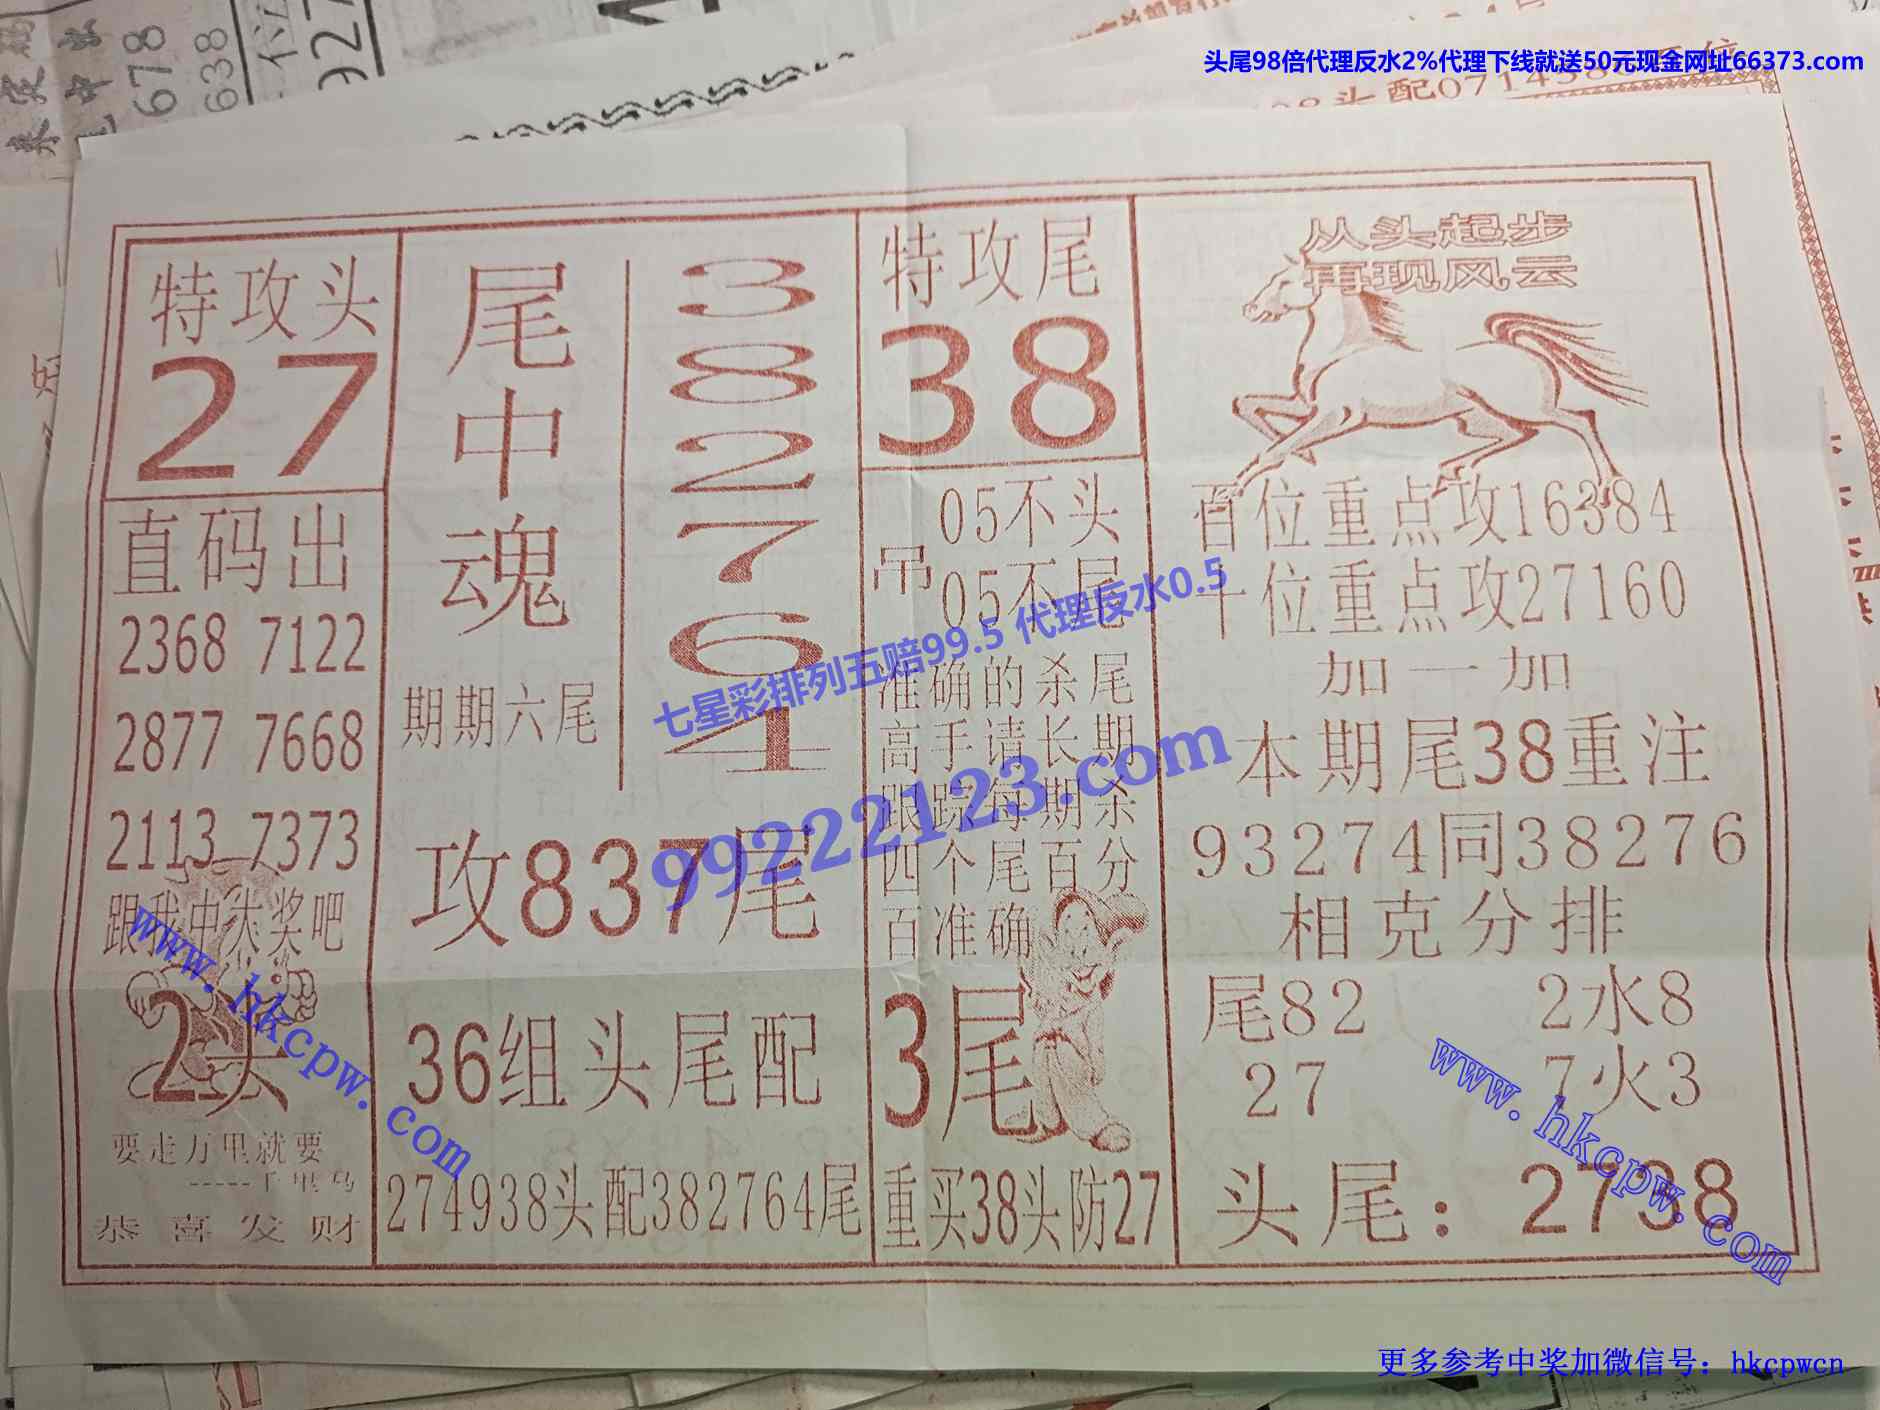 头尾98倍代理反水2%代理下线就送50元现金网址66373.com
678
638
特攻头
27
直码出
2368 7122
2877 7668
2113 7373
跟我中大奖吧
2头
要走万里就要
-----千里马
恭喜发财
尾中魂
期期六尾
382764
攻837尾
36组头尾配
274938头配382764尾
特攻尾
38
吊
05不头
05不尾
准确的杀尾
高手请长期
跟踪每期杀
四个尾百分
百准确
3尾
重买38头防27
从头起步
再现风云
百位重点攻16384
十位重点攻27160
加一加
本期尾38重注
93274同38276
相克分排
尾82 2水8
27 7火3
头尾：2738
七星彩排列五赔99.5 代理反水0.5
99222123.com
www.hkcpw.com
www.hkcpw.com
更多参考中奖加微信号：hkcpwcn